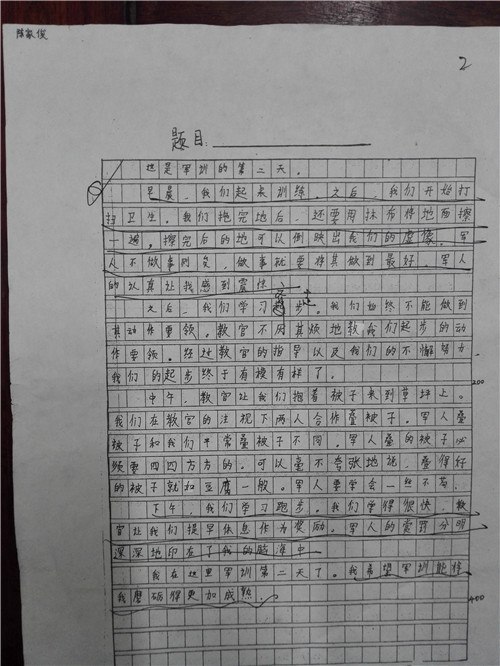 2
题目:
这是军训的第二天。
早晨,我们起来训练。之后,我们开始打
扫卫生。我们拖完地后,还要用抹布将地面擦
一遍。擦完后的地可以倒映出我们的虚像。军
人不做事则矣,做事就要将其做到最好。军人
的认真让我感到震惊。
之后,我们学习步。我们始终不能做到
其动作要领。教官不因其烦地教我们起步的动
作要领。经过教官的指导以及我们的不懈努力,
我们的起步终于有模有样了。
200
中午,教官让我们抱着被子来到草坪上。
我们在教官的注视下两人合作叠被子。军人叠
被子和我们平常叠被子不同。军人叠的被子必
须要四四方方的。可以毫不夸张地说,叠得好
的被子就如豆腐一般。军人要学会一丝不苟。
下午,我们学习跑步。我们学得很快,教
官让我们提早休息作为奖励。军人的赏罚分明
深深地印在了我的脑海中
我在这里军训第二天了。我希望军训能将
我磨砺得更加成熟。
400